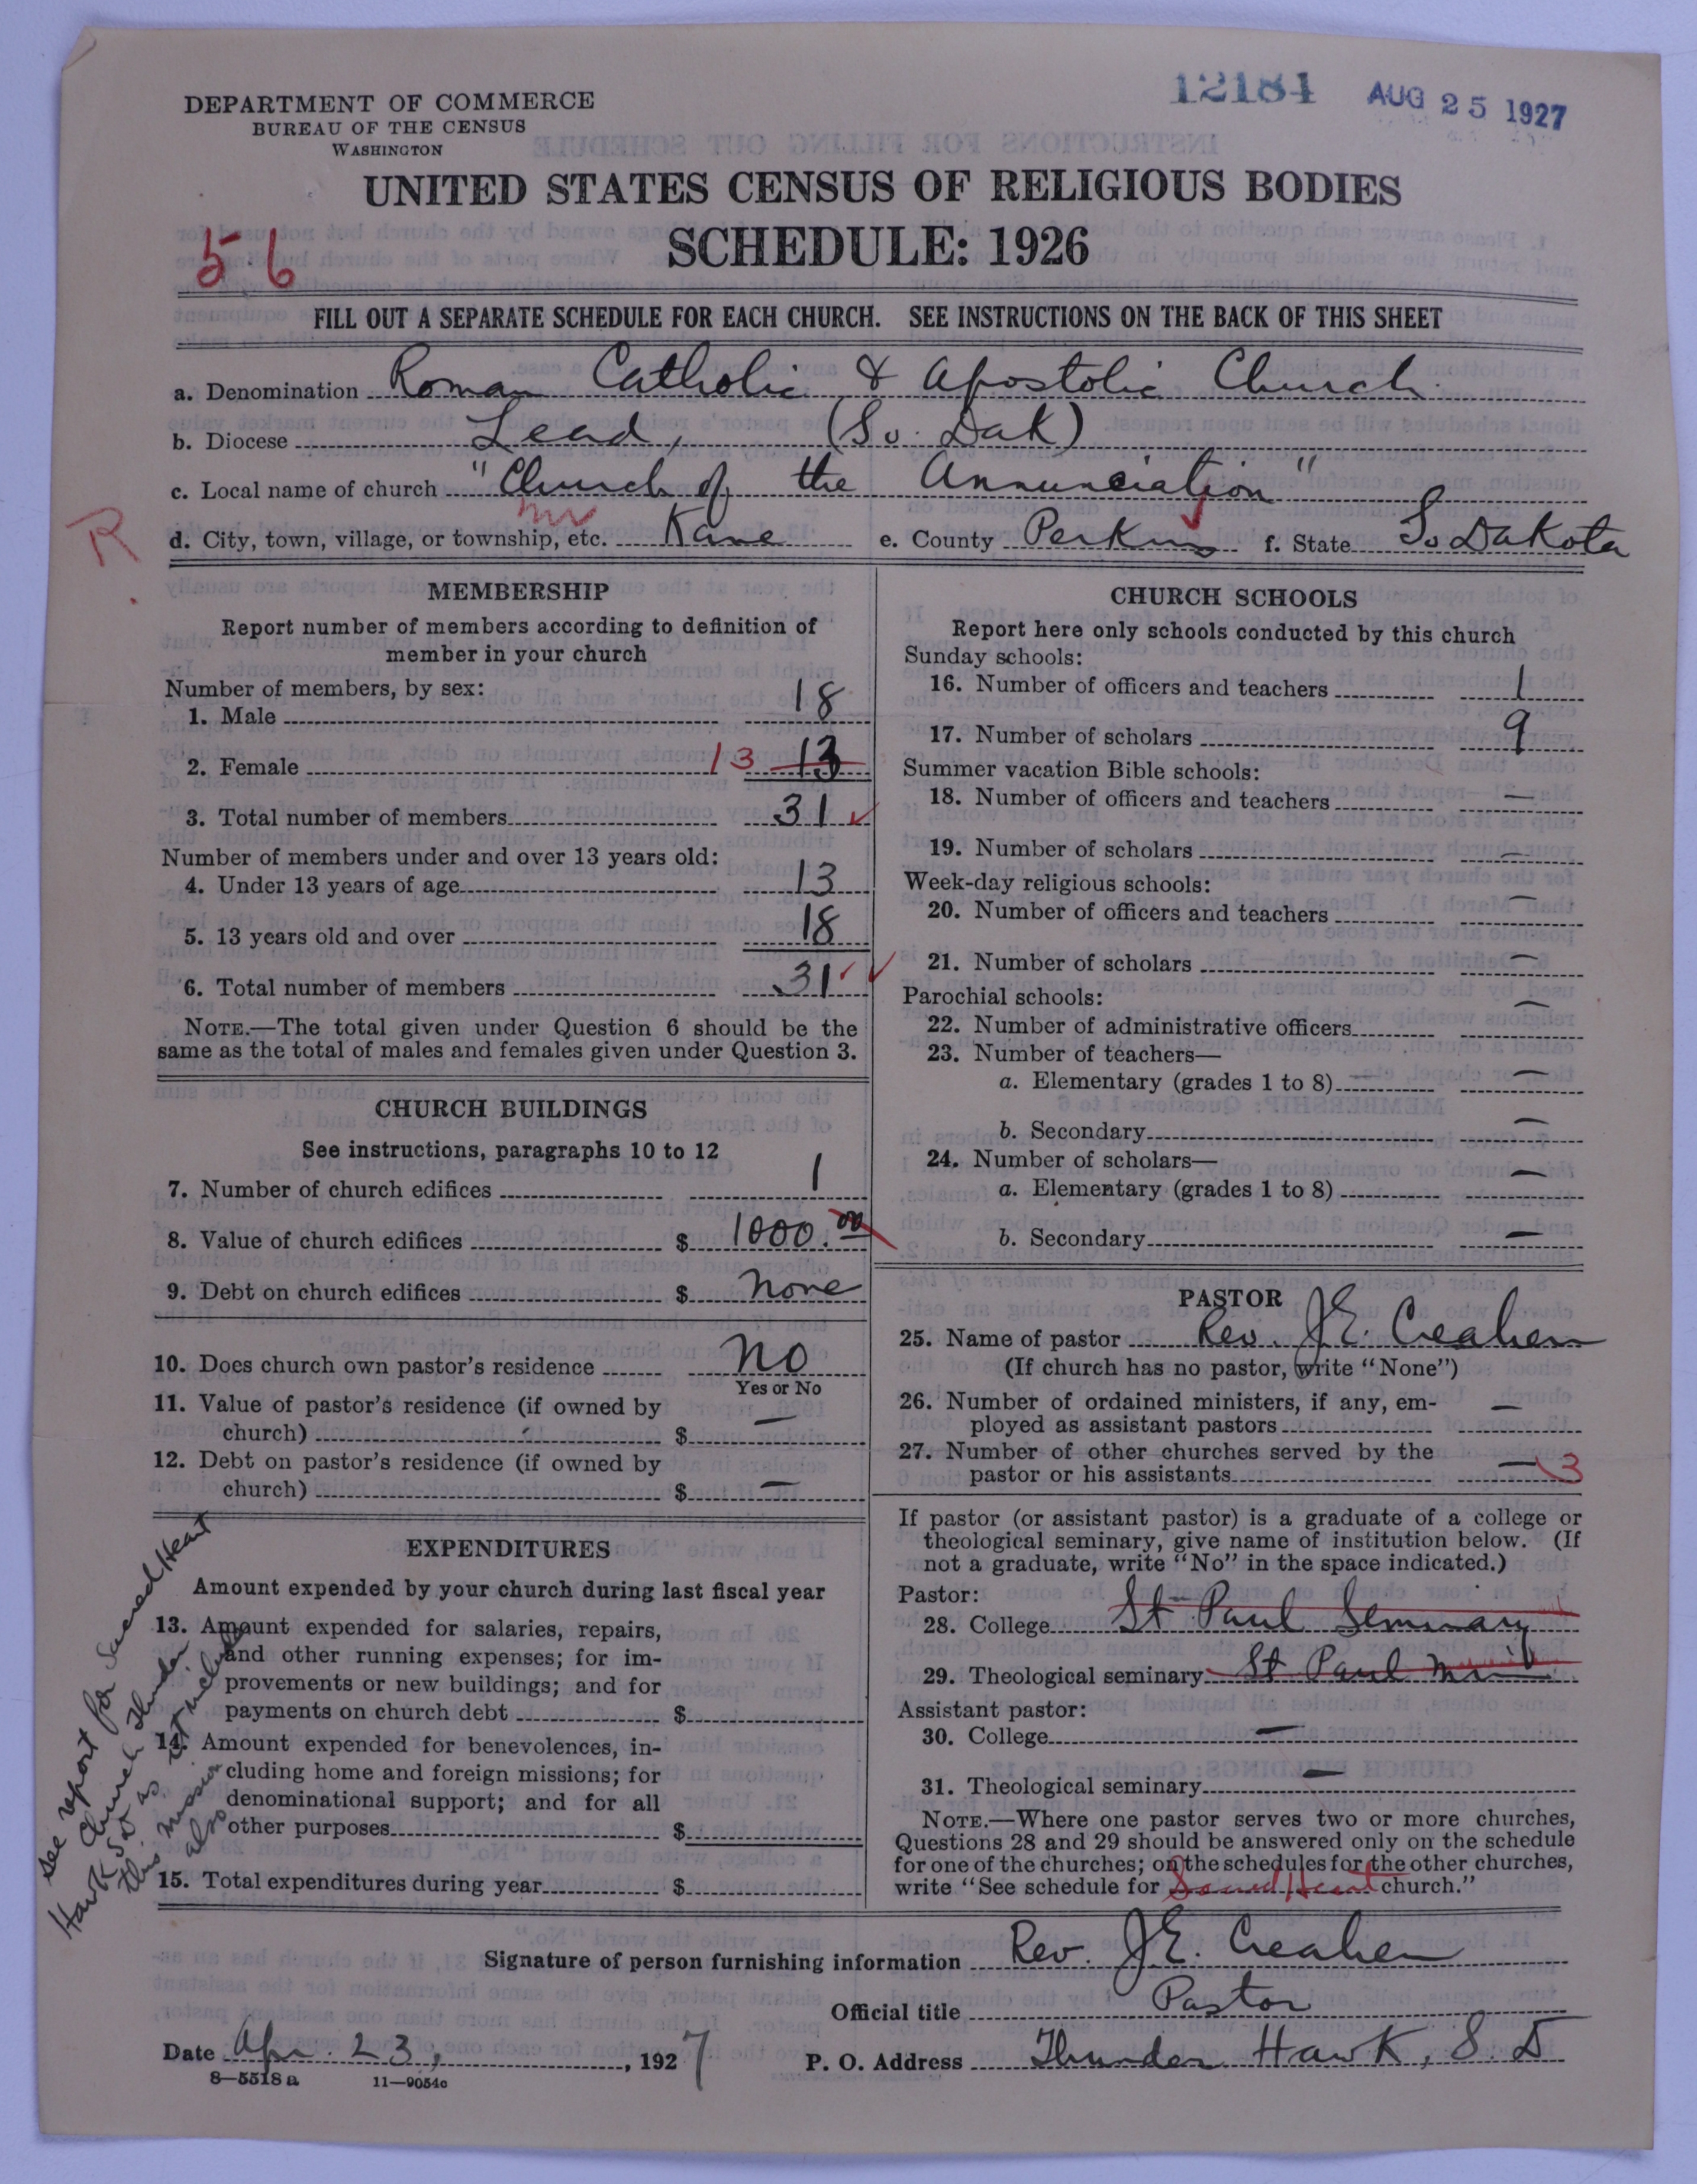 12184 AUG 25 1927
DEPARTMENT OF COMMERCE
BUREAU OF THE CENSUS
WASHINGTON
UNITED STATES CENSUS OF RELIGIOUS BODIES
SCHEDULE: 1926
56
FILL OUT A SEPARATE SCHEDULE FOR EACH CHURCH. SEE INSTRUCTIONS ON THE BACK OF THIS SHEET
a. Denomination Roman Catholic & Apostolic Church.
b. Diocese Lead, (So. Dak)
c. Local name of church "Church of the Annunciation"
R
d. City, town, village, or township, etc. Kane e. County Perkins f. State So Dakota
MEMBERSHIP
Report number of members according to definition of
member in your church
Number of members, by sex:
1. Male 18
2. Female 13 13
3. Total number of members 31
Number of members under and over 13 years old:
4. Under 13 years of age 13
5. 13 years old and over 18
6. Total number of members 31
NOTE.—The total given under Question 6 should be the
same as the total of males and females given under Question 3.
CHURCH BUILDINGS
See instructions, paragraphs 10 to 12
7. Number of church edifices 1
8. Value of church edifices $ 1000.00
9. Debt on church edifices $ none
10. Does church own pastor's residence no
Yes or No
11. Value of pastor's residence (if owned by
church) $ —
12. Debt on pastor's residence (if owned by
church) $ —
EXPENDITURES
Amount expended by your church during last fiscal year
13. Amount expended for salaries, repairs,
and other running expenses; for im-
provements or new buildings; and for
payments on church debt $
14. Amount expended for benevolences, in-
cluding home and foreign missions; for
denominational support; and for all
other purposes $
15. Total expenditures during year $
see report for Sacred Heart
Church Thunder
Hawk So as it includes
this mission
also
CHURCH SCHOOLS
Report here only schools conducted by this church
Sunday schools:
16. Number of officers and teachers 1
17. Number of scholars 9
Summer vacation Bible schools:
18. Number of officers and teachers —
19. Number of scholars —
Week-day religious schools:
20. Number of officers and teachers —
21. Number of scholars —
Parochial schools:
22. Number of administrative officers —
23. Number of teachers—
a. Elementary (grades 1 to 8) —
b. Secondary —
24. Number of scholars—
a. Elementary (grades 1 to 8) —
b. Secondary —
PASTOR
25. Name of pastor Rev. J.E. Creahen
(If church has no pastor, write "None")
26. Number of ordained ministers, if any, em-
ployed as assistant pastors —
27. Number of other churches served by the
pastor or his assistants — 3
If pastor (or assistant pastor) is a graduate of a college or
theological seminary, give name of institution below. (If
not a graduate, write "No" in the space indicated.)
Pastor:
28. College St Paul Seminary
29. Theological seminary St Paul
Assistant pastor:
30. College —
31. Theological seminary —
NOTE.—Where one pastor serves two or more churches,
Questions 28 and 29 should be answered only on the schedule
for one of the churches; on the schedules for the other churches,
write "See schedule for Sacred Heart church."
Signature of person furnishing information Rev. J.E. Creahen
Official title Pastor
Date Apr. 23, 1927 P. O. Address Thunder Hawk, S. D
8—5518 a 11—9054c